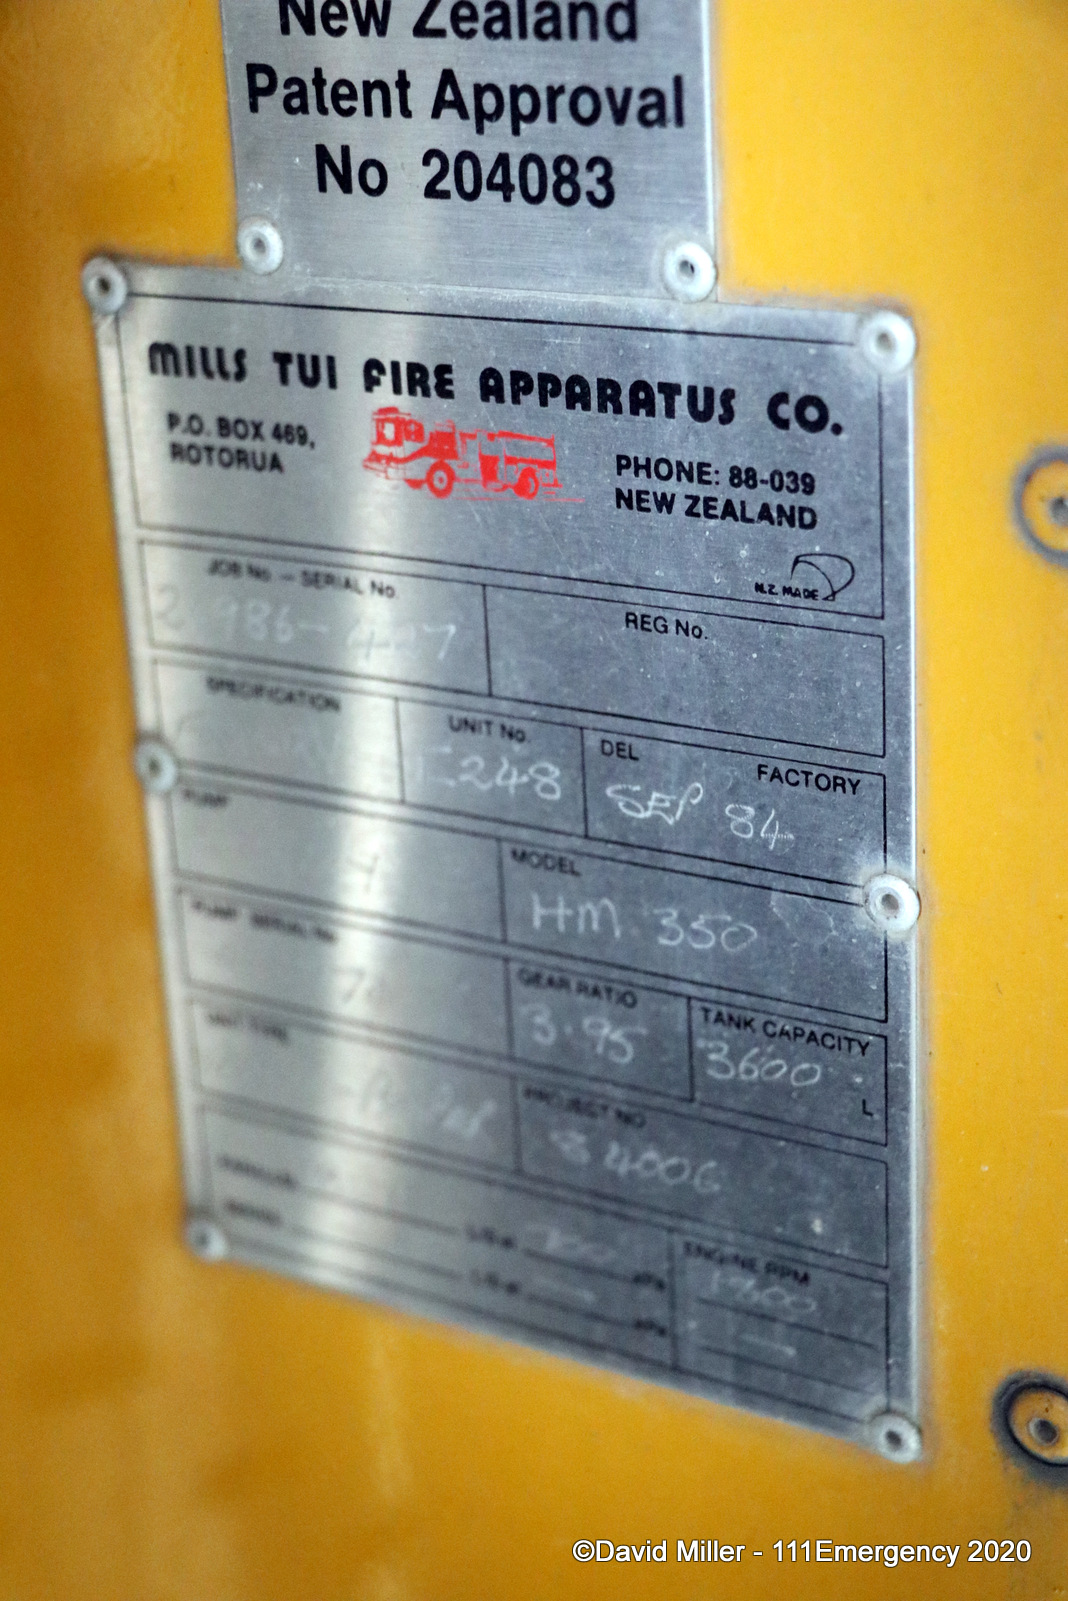 New Zealand
Patent Approval
No 204083
MILLS TUI FIRE APPARATUS CO.
P.O. BOX 469,
ROTORUA
PHONE: 88-039
NEW ZEALAND
N.Z. MADE
JOB No. - SERIAL No.
REG No.
SPECIFICATION
UNIT No.
248
DEL FACTORY
SEP 84
PUMP
MODEL
HM 350
PUMP SERIAL No.
GEAR RATIO
3.95
TANK CAPACITY
3600
L
UNIT TYPE
PROJECT NO
84006
ENGINE RPM
kPa
kPa
©David Miller - 111Emergency 2020